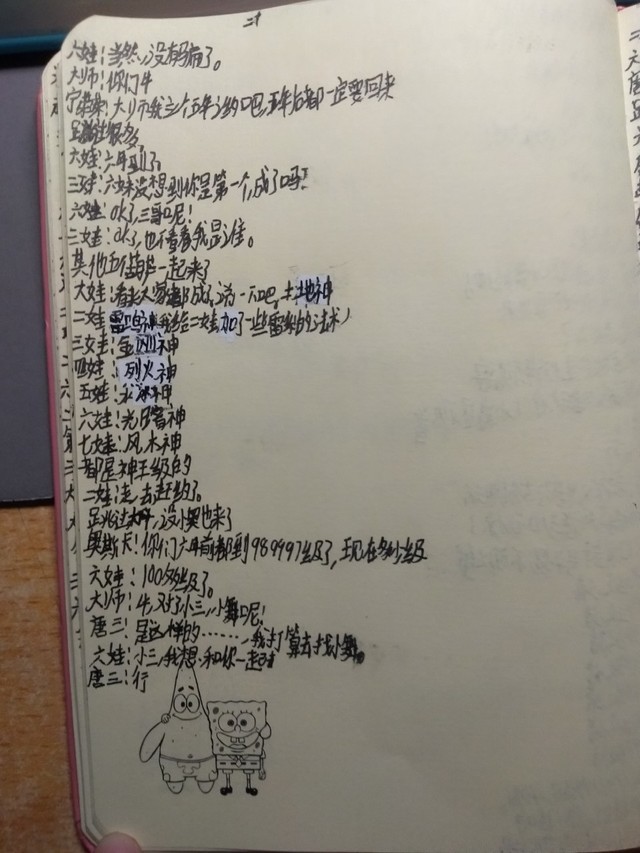 六娃：当然，没有吗病了。
大师：你们牛
宁荣荣：大师我三个五年之约吧，五年后都一定要回来
六娃：六年到了。
三娃：六妹没想到你是第一个，成了吗？
六娃：OK了，三哥呢！
三娃：OK了，也不看看我是谁。
其他五个葫芦一起来了
大娃：看老大家都成了，说一下吧，土地神
二娃 雷鸣神（我给二娃加了一些雷系的法术）
三娃：金刚神
四娃：烈火神
五娃：水冰神
六娃：光暗神
七娃：风木神
都是神王级的
二娃：走，去赴约了。
奥斯卡：你们六年前都到989997级了，现在多少级
六娃：100多级了。
大师：牛，对了小三，小舞呢！
唐三：是这样的……，我打算去找小舞。
六娃：小三，我想和你一起去
唐三：行